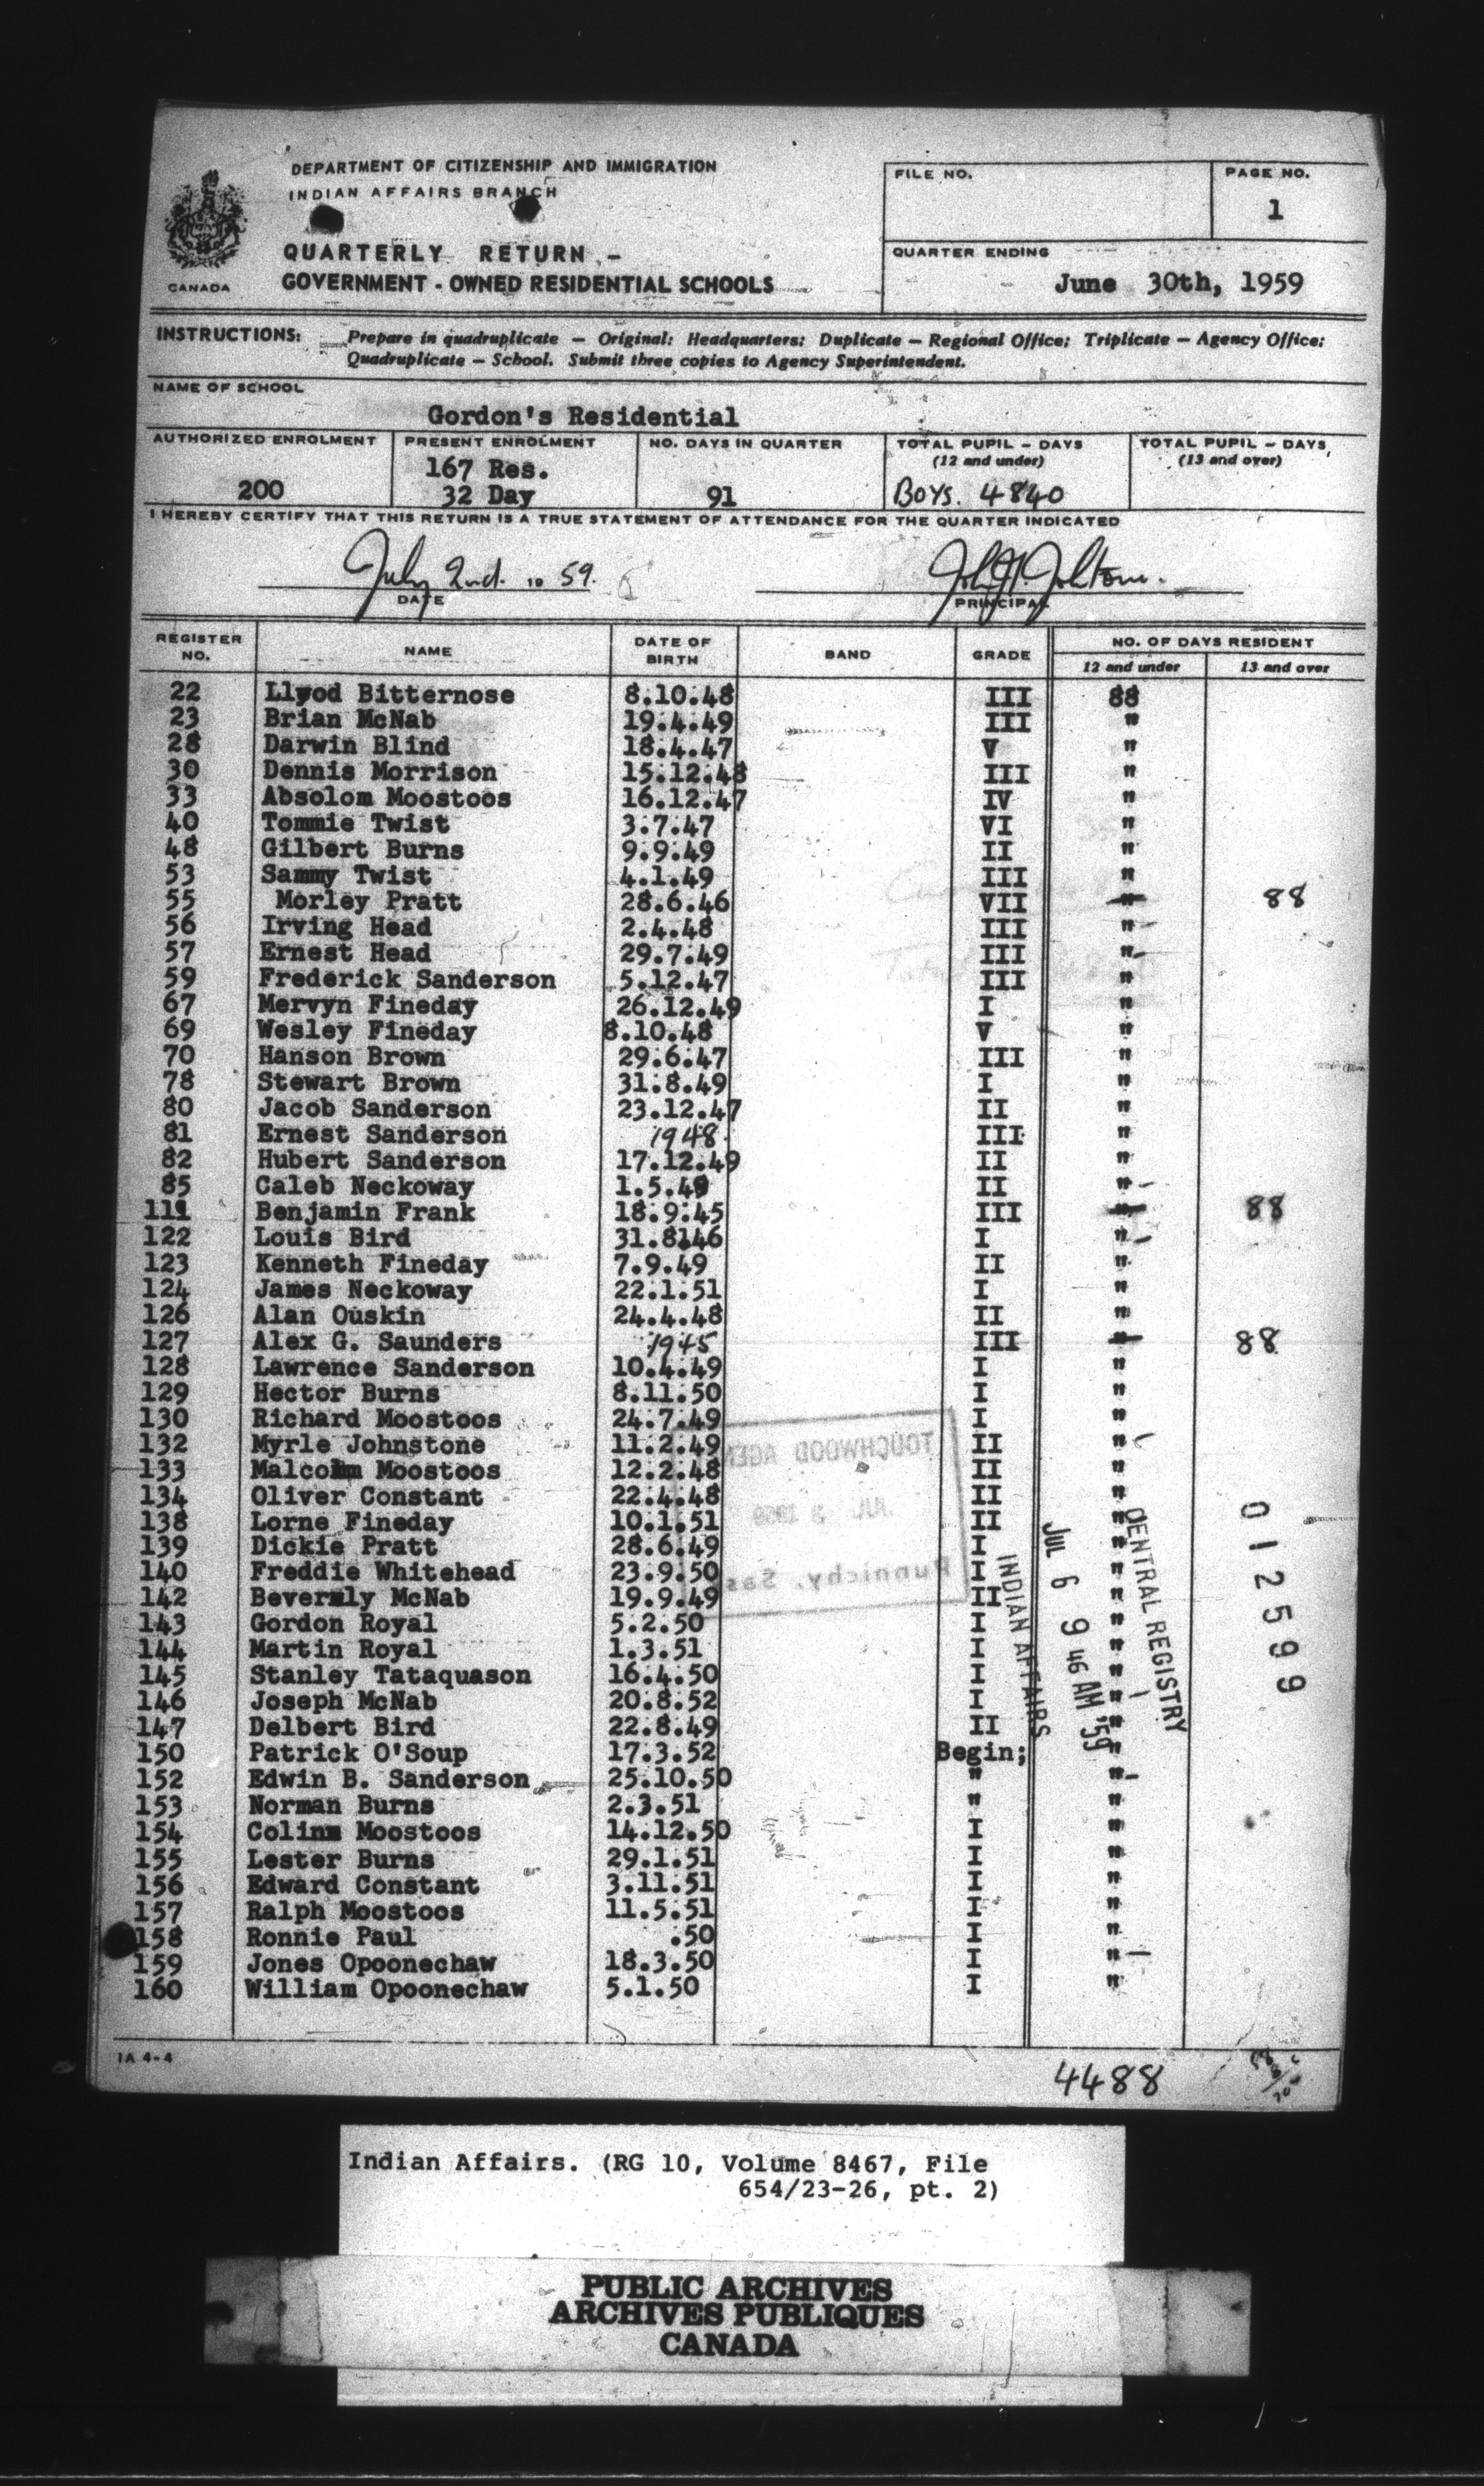 DEPARTMENT OF CITIZENSHIP AND IMMIGRATION
INDIAN AFFAIRS BRANCH
QUARTERLY RETURN -
GOVERNMENT - OWNED RESIDENTIAL SCHOOLS
CANADA
FILE NO.
PAGE NO.
1
QUARTER ENDING
June 30th, 1959
INSTRUCTIONS: Prepare in quadruplicate — Original: Headquarters; Duplicate — Regional Office; Triplicate — Agency Office;
Quadruplicate — School. Submit three copies to Agency Superintendent.
NAME OF SCHOOL
Gordon's Residential
AUTHORIZED ENROLMENT PRESENT ENROLMENT NO. DAYS IN QUARTER TOTAL PUPIL - DAYS TOTAL PUPIL - DAYS
(12 and under) (13 and over)
167 Res.
200 32 Day 91 Boys. 4840
I HEREBY CERTIFY THAT THIS RETURN IS A TRUE STATEMENT OF ATTENDANCE FOR THE QUARTER INDICATED
July 2nd. 19 59.
DATE PRINCIPAL
REGISTER NO. NAME DATE OF BIRTH BAND GRADE NO. OF DAYS RESIDENT
12 and under 13 and over
22 Llyod Bitternose 8.10.48 III 88
23 Brian McNab 19.4.49 III "
28 Darwin Blind 18.4.47 V "
30 Dennis Morrison 15.12.48 III "
33 Absolom Moostoos 16.12.47 IV "
40 Tommie Twist 3.7.47 VI "
48 Gilbert Burns 9.9.49 II "
53 Sammy Twist 4.1.49 III "
55 Morley Pratt 28.6.46 VII " 88
56 Irving Head 2.4.48 III "
57 Ernest Head 29.7.49 III "
59 Frederick Sanderson 5.12.47 III "
67 Mervyn Fineday 26.12.49 I "
69 Wesley Fineday 8.10.48 V "
70 Hanson Brown 29.6.47 III "
78 Stewart Brown 31.8.49 I "
80 Jacob Sanderson 23.12.47 II "
81 Ernest Sanderson 1948 III "
82 Hubert Sanderson 17.12.49 II "
85 Caleb Neckoway 1.5.49 II "
111 Benjamin Frank 18.9.45 III " 88
122 Louis Bird 31.8146 I "
123 Kenneth Fineday 7.9.49 II "
124 James Neckoway 22.1.51 I "
126 Alan Ouskin 24.4.48 II "
127 Alex G. Saunders 1945 III " 88
128 Lawrence Sanderson 10.4.49 I "
129 Hector Burns 8.11.50 I "
130 Richard Moostoos 24.7.49 I "
132 Myrle Johnstone 11.2.49 II "
133 Malcolm Moostoos 12.2.48 II "
134 Oliver Constant 22.4.48 II "
138 Lorne Fineday 10.1.51 II "
139 Dickie Pratt 28.6.49 I "
140 Freddie Whitehead 23.9.50 I "
142 Beverly McNab 19.9.49 II "
143 Gordon Royal 5.2.50 I "
144 Martin Royal 1.3.51 I "
145 Stanley Tataquason 16.4.50 I "
146 Joseph McNab 20.8.52 I "
147 Delbert Bird 22.8.49 II "
150 Patrick O'Soup 17.3.52 Begin; "
152 Edwin B. Sanderson 25.10.50 " "
153 Norman Burns 2.3.51 " "
154 Colin Moostoos 14.12.50 I "
155 Lester Burns 29.1.51 I "
156 Edward Constant 3.11.51 I "
157 Ralph Moostoos 11.5.51 I "
158 Ronnie Paul .50 I "
159 Jones Opoonechaw 18.3.50 I "
160 William Opoonechaw 5.1.50 I "
TOUCHWOOD AGEN
JUL 3 1959
Punnichy, Sas
INDIAN AFFAIRS
JUL 6 9 46 AM '59
CENTRAL REGISTRY
012599
IA 4-4
4488
Indian Affairs. (RG 10, Volume 8467, File
654/23-26, pt. 2)
PUBLIC ARCHIVES
ARCHIVES PUBLIQUES
CANADA